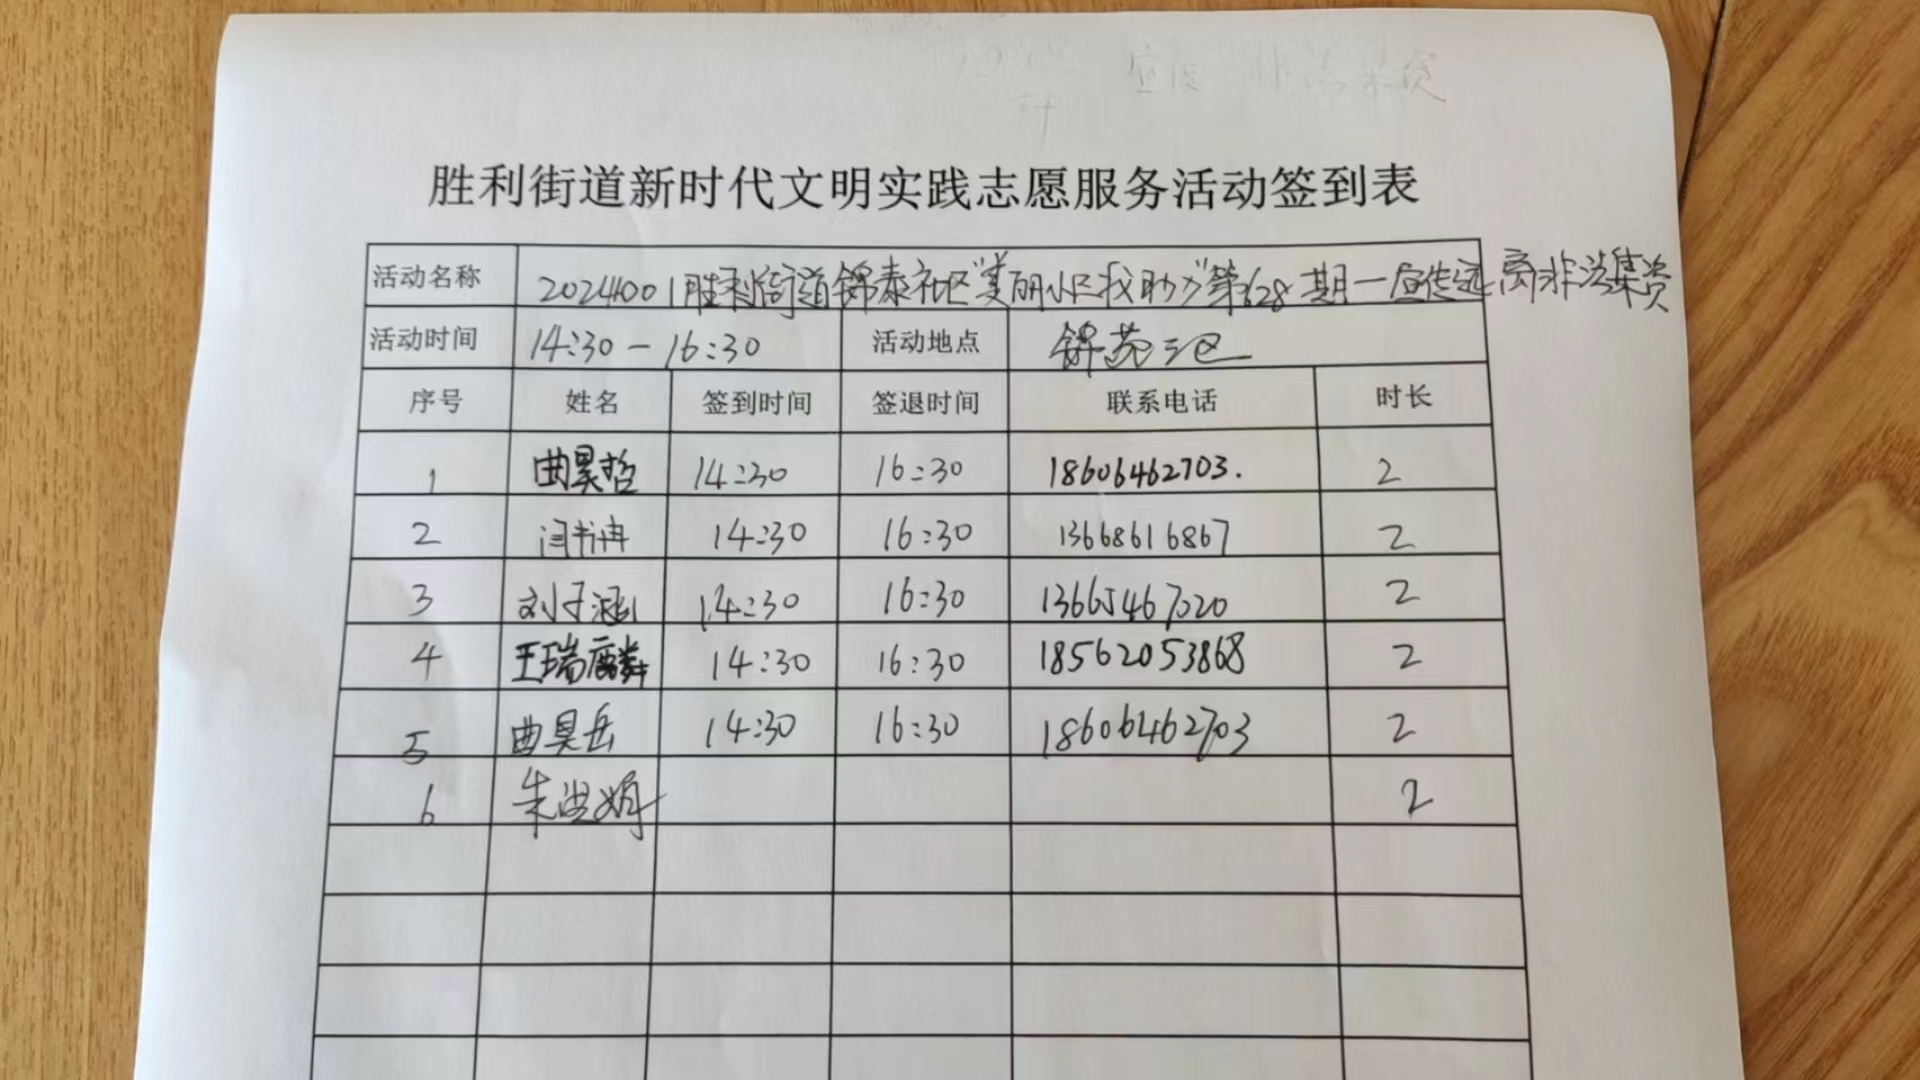 胜利街道新时代文明实践志愿服务活动签到表
活动名称 20241001胜利街道锦泰社区"美丽小区我助力"第628期一宣传远离非法集资
活动时间 14:30-16:30 活动地点 锦苑三区
序号 姓名 签到时间 签退时间 联系电话 时长
1 曲昊哲 14:30 16:30 18606462703. 2
2 闫书冉 14:30 16:30 13668616867 2
3 刘子涵 14:30 16:30 13665467020 2
4 王瑞麟 14:30 16:30 18562053868 2
5 曲昊岳 14:30 16:30 18606462703 2
6 朱 娟 2